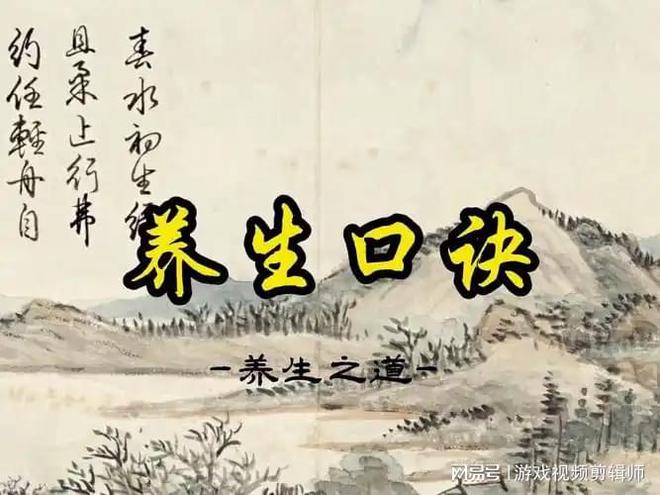 春水初生
且柔上行
约任輕舟自
养生口诀
-养生之道-
搜狐号|游戏视频剪辑师